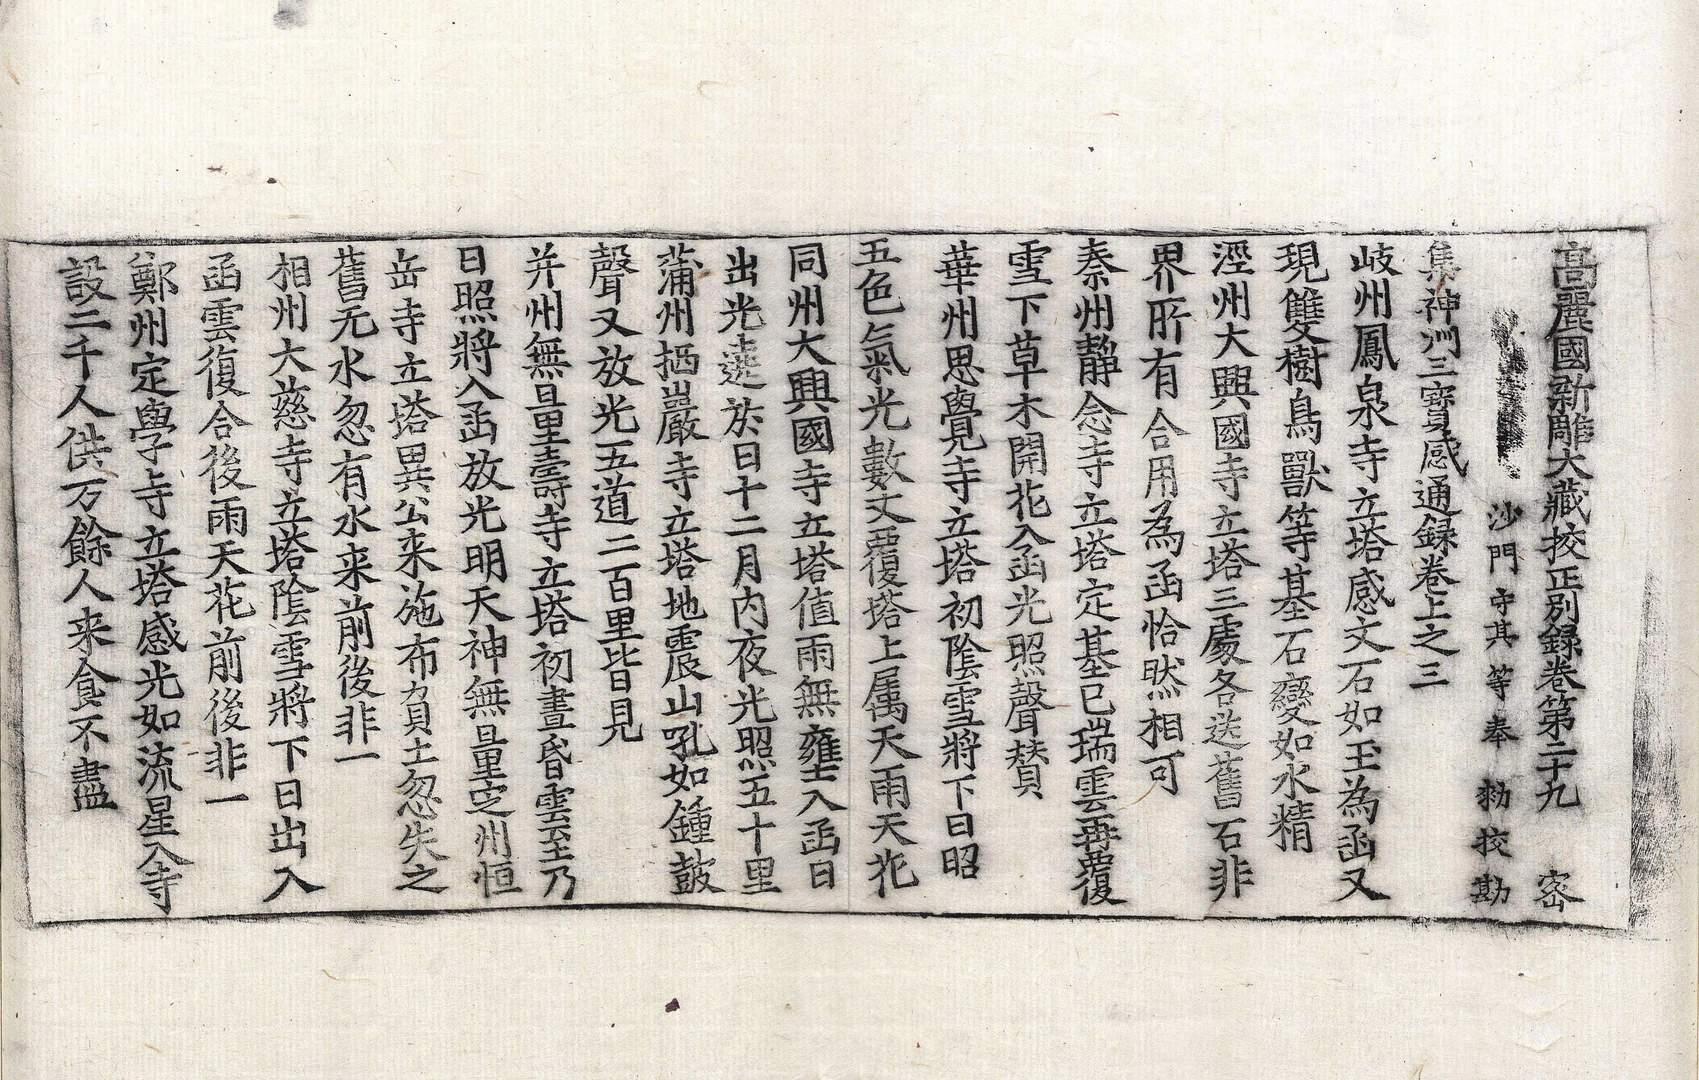 高麗國新雕大藏挍正別錄卷第二十九 密
沙門守其等奉 勑挍勘
集神州三寶感通錄卷上之三
岐州鳳泉寺立塔感文石如玉為函又
現雙樹鳥獸等基石變如水精
涇州大興國寺立塔三處各送舊石非
界所有合用為函恰然相可
秦州靜念寺立塔定基已瑞雲再覆
雪下草木開花入函光照聲賛
華州思覺寺立塔初陰雪將下日昭
五色氣光數丈覆塔上属天雨天花
同州大興國寺立塔值雨無壅入函日
出光遶於日十二月內夜光照五十里
蒲州栖巖寺立塔地震山吼如鍾皷
聲又放光五道二百里皆見
并州無量壽寺立塔初晝昏雲至乃
日照將入函放光明天神無量定州恒
岳寺立塔異公来施布負土忽失之
舊无水忽有水来前後非一
相州大慈寺立塔陰雪將下日出入
函雲復合後雨天花前後非一
鄭州定學寺立塔感光如流星入寺
設二千人供万餘人来食不盡